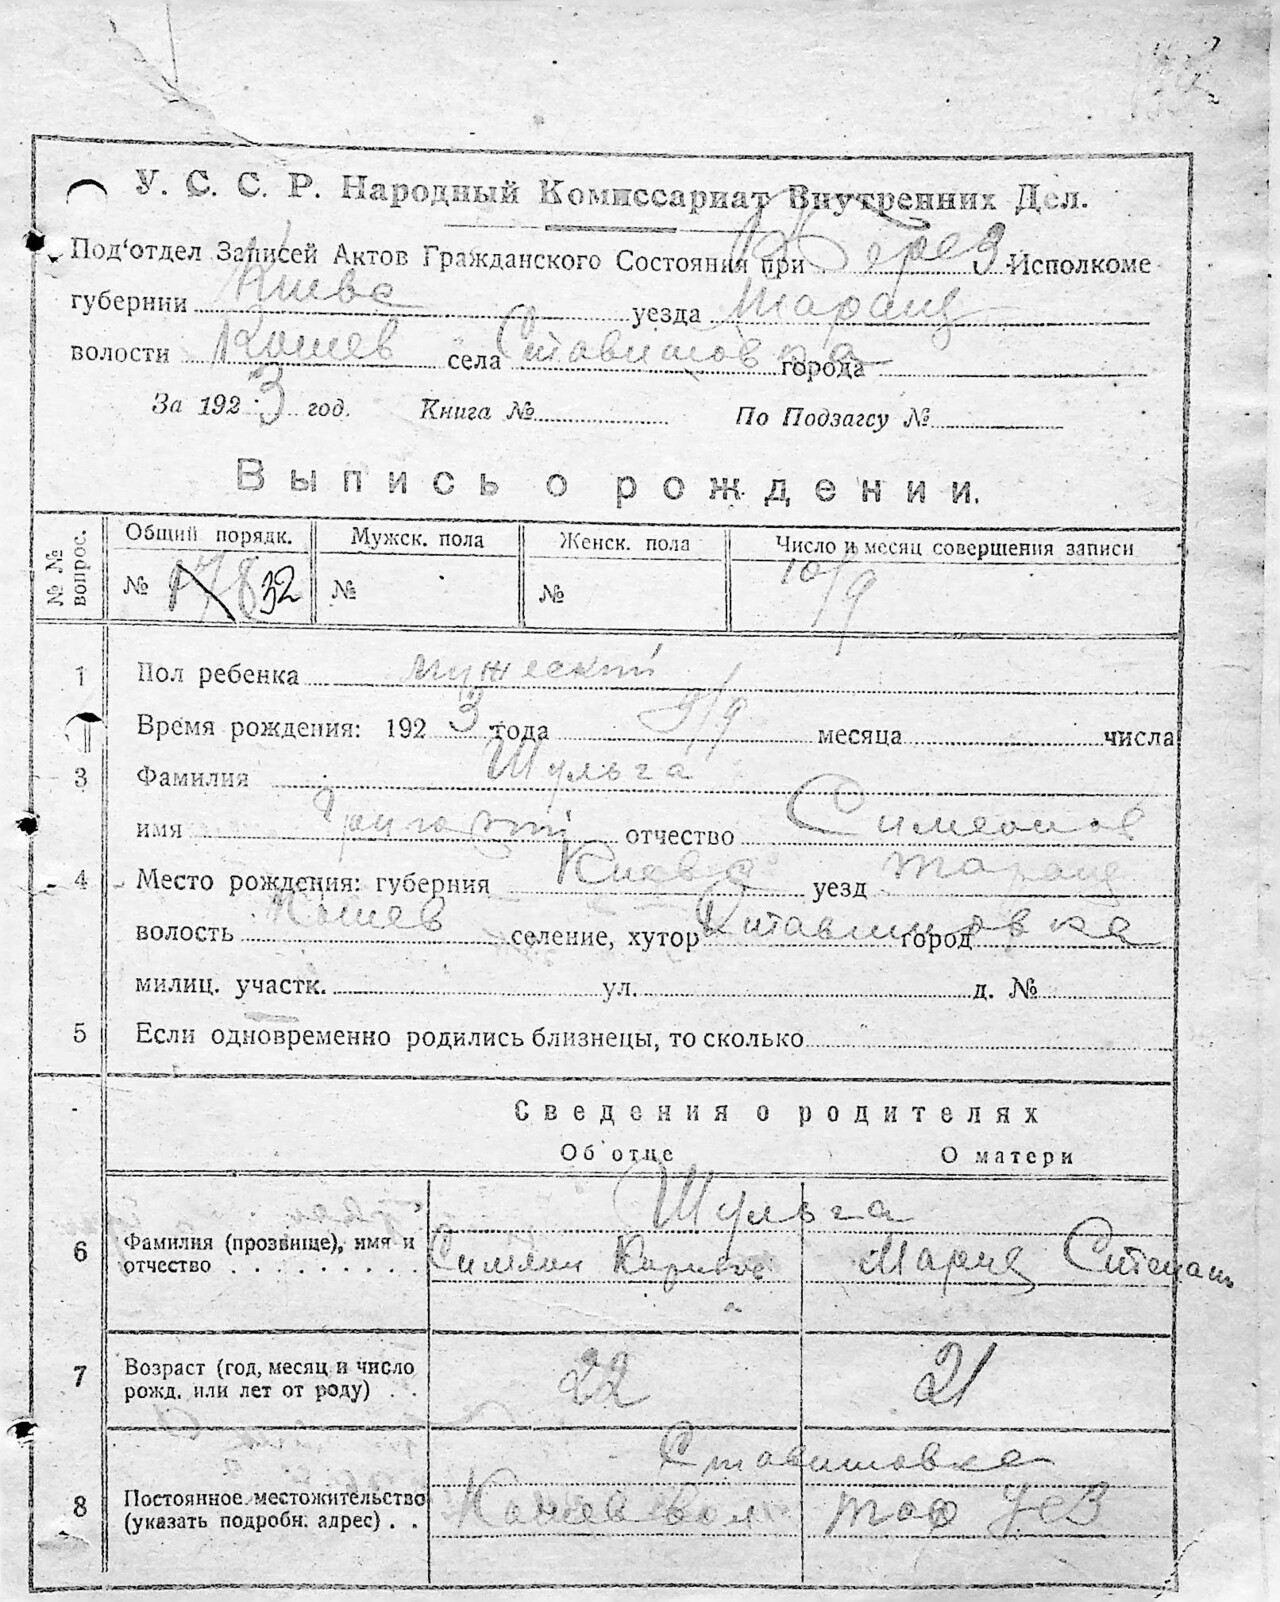 У. С. С. Р. Народный Комиссариат Внутренних Дел.
Под'отдел Записей Актов Гражданского Состояния при Исполкоме
губернии Киевс уезда Таращ
волости Кошев села Ставишовка города
За 1923 год. Книга № По Подзагсу №
Выпись о рождении.
№ № вопрос. Общий порядк. Мужск. пола Женск. пола Число и месяц совершения записи
№ 32 № № 10/9
1 Пол ребенка мужеский
Время рождения: 1923 года 9/9 месяца числа
3 Фамилия Шульга
имя Григорий отчество Симеонов
4 Место рождения: губерния Киевс уезд Таращ
волость Кошев селение, хутор Ставишовка город
милиц. участк. ул. д. №
5 Если одновременно родились близнецы, то сколько
Сведения о родителях
Об отце О матери
Шульга
6 Фамилия (прозвище), имя и отчество Симеон Мария Степан
7 Возраст (год, месяц и число рожд. или лет от роду) 22 21
Ставишовка
8 Постоянное местожительство (указать подробн. адрес) Кошев вол Тар уез